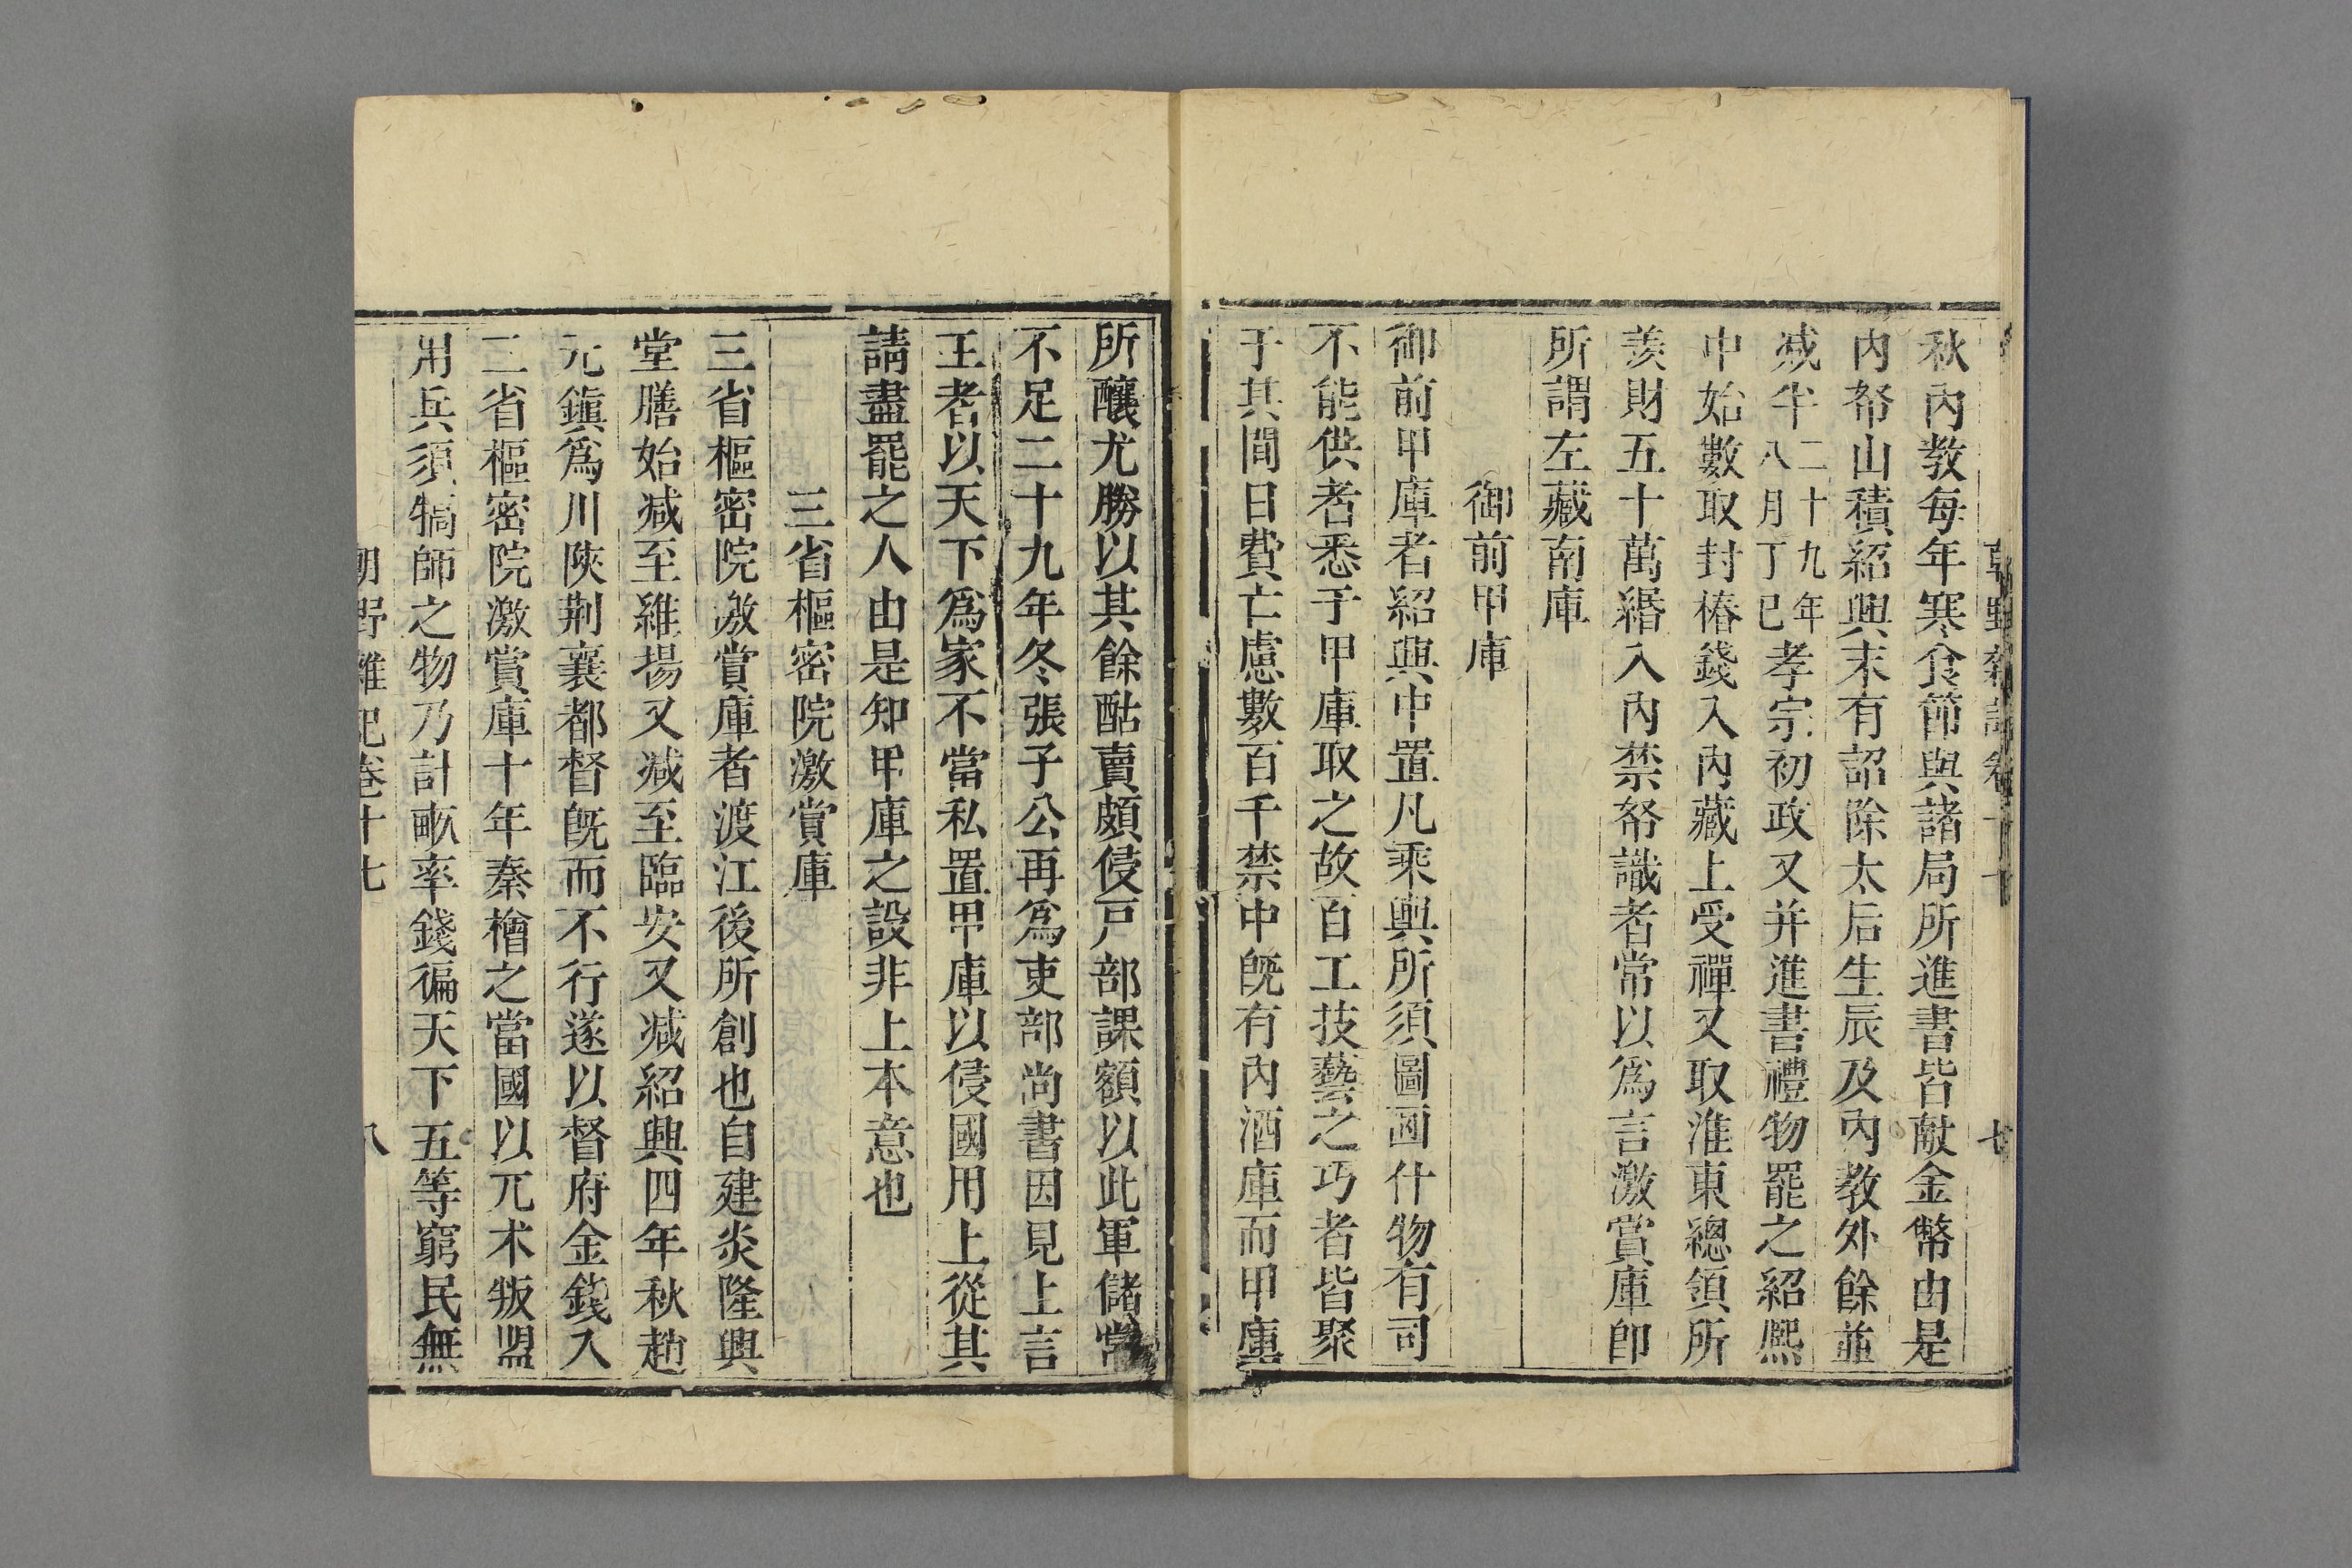 秋內教每年寒食節與諸局所進書皆献金幣由是
內帑山積紹興末有詔除太后生辰及內教外餘並
减半二十九年八月丁巳孝宗初政又并進書禮物罷之紹熈
中始數取封椿錢入內藏上受禪又取淮東總領所
羡財五十萬緡入內禁帑識者常以爲言激賞庫卽
所謂左藏南庫
御前甲庫
御前甲庫者紹興中置凡乘輿所須圖画什物有司
不能供者悉于甲庫取之故百工技藝之巧者皆聚
于其間日費亡慮數百千禁中旣有內酒庫而甲庫
所釀尤勝以其餘酤賣頗侵戸部課額以此軍儲常
不足二十九年冬張子公再爲吏部尚書因見上言
王者以天下爲家不當私置甲庫以侵國用上從其
請盡罷之人由是知甲庫之設非上本意也
三省樞密院激賞庫
三省樞密院激賞庫者渡江後所創也自建炎隆興
堂膳始减至維揚又减至臨安又减紹興四年秋趙
元鎭爲川陝荆襄都督旣而不行遂以督府金錢入
三省樞密院激賞庫十年秦檜之當國以兀术叛盟
用兵須犒師之物乃計畝率錢徧天下五等窮民無
朝野雜記卷十七
八